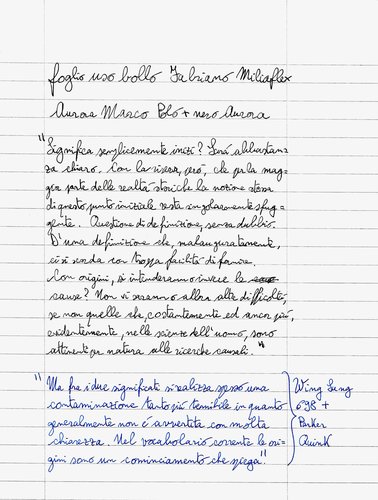 foglio uso bollo Fabriano Miliaflex
Aurora Marco Polo + nero Aurora
"Significa semplicemente inizi? Sarà abbastan=
za chiaro. Con la riserva, però, che per la mag=
gior parte delle realtà storiche la nozione stessa
di questo punto iniziale resta singolarmente sfug=
gente. Questione di definizione, senza dubbio.
D'una definizione che, malauguratamente,
ci si scorda con troppa facilità di fornire.
Con origini, si intenderanno invece le
cause? Non vi saranno allora altre difficoltà,
se non quelle che, costantemente ed ancor più,
evidentemente, nelle scienze dell'uomo, sono
attinenti per natura alle ricerche causali."
"Ma fra i due significati si realizza spesso una
contaminazione tanto più temibile in quanto
generalmente non è avvertita con molta
chiarezza. Nel vocabolario corrente le ori=
gini sono un cominciamento che spiega"
Wing Sung
698 +
Parker
Quink